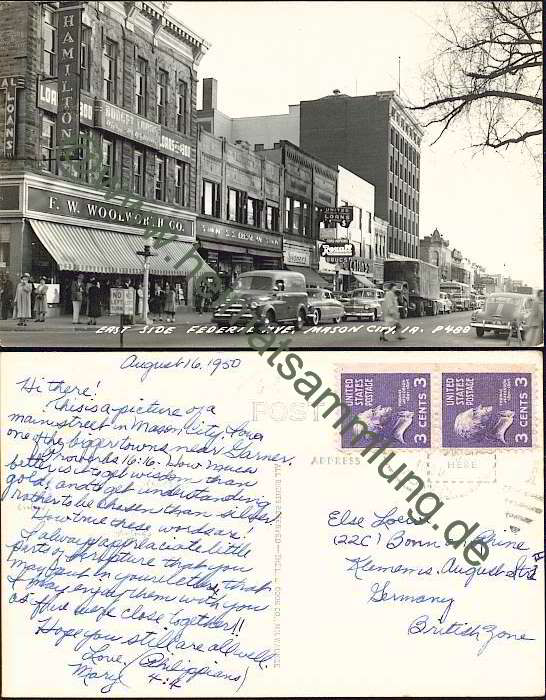 HAMILTON
LOANS
BUDGET
LOANS
F. W. WOOLWORTH CO.
UNITED
LOANS
Rexall
DRUGS
NO
EAST SIDE FEDERAL AVE. MASON CITY, IA. P488
www.heimatsammlung.de
August 16, 1950
Hi there!
This is a picture of a
mainstreet in Mason City, Iowa
one of the bigger towns near Garner.
Proverbs 16:16. How much
better is it to get wisdom than
gold! and to get understanding
rather to be chosen than silver.
How true these words are!
I always appreciate little
parts of Scripture that you
may put in your letters, that
I may enjoy them with you
as if we were close together!!
Hope you still are all well.
Love, (Philippians)
Mary 4:4
POST
ADDRESS
HERE
ALL RIGHTS RESERVED
UNITED STATES
POSTAGE
3
CENTS 3
UNITED STATES
POSTAGE
3
CENTS 3
Else
(22C) Bonn
Klemens. August Str.
Germany
British Zone